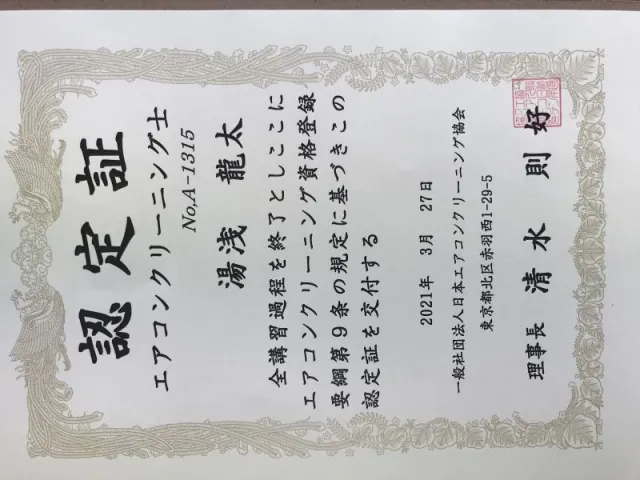 認定証
エアコンクリーニング士
No,A-1315
湯浅 龍太
全講習過程を終了としここに
エアコンクリーニング資格登録
要綱第9条の規定に基づきこの
認定証を交付する
2021年 3月 27日
一般社団法人日本エアコンクリーニング協会
東京都北区赤羽西1-29-5
理事長 清水 則好